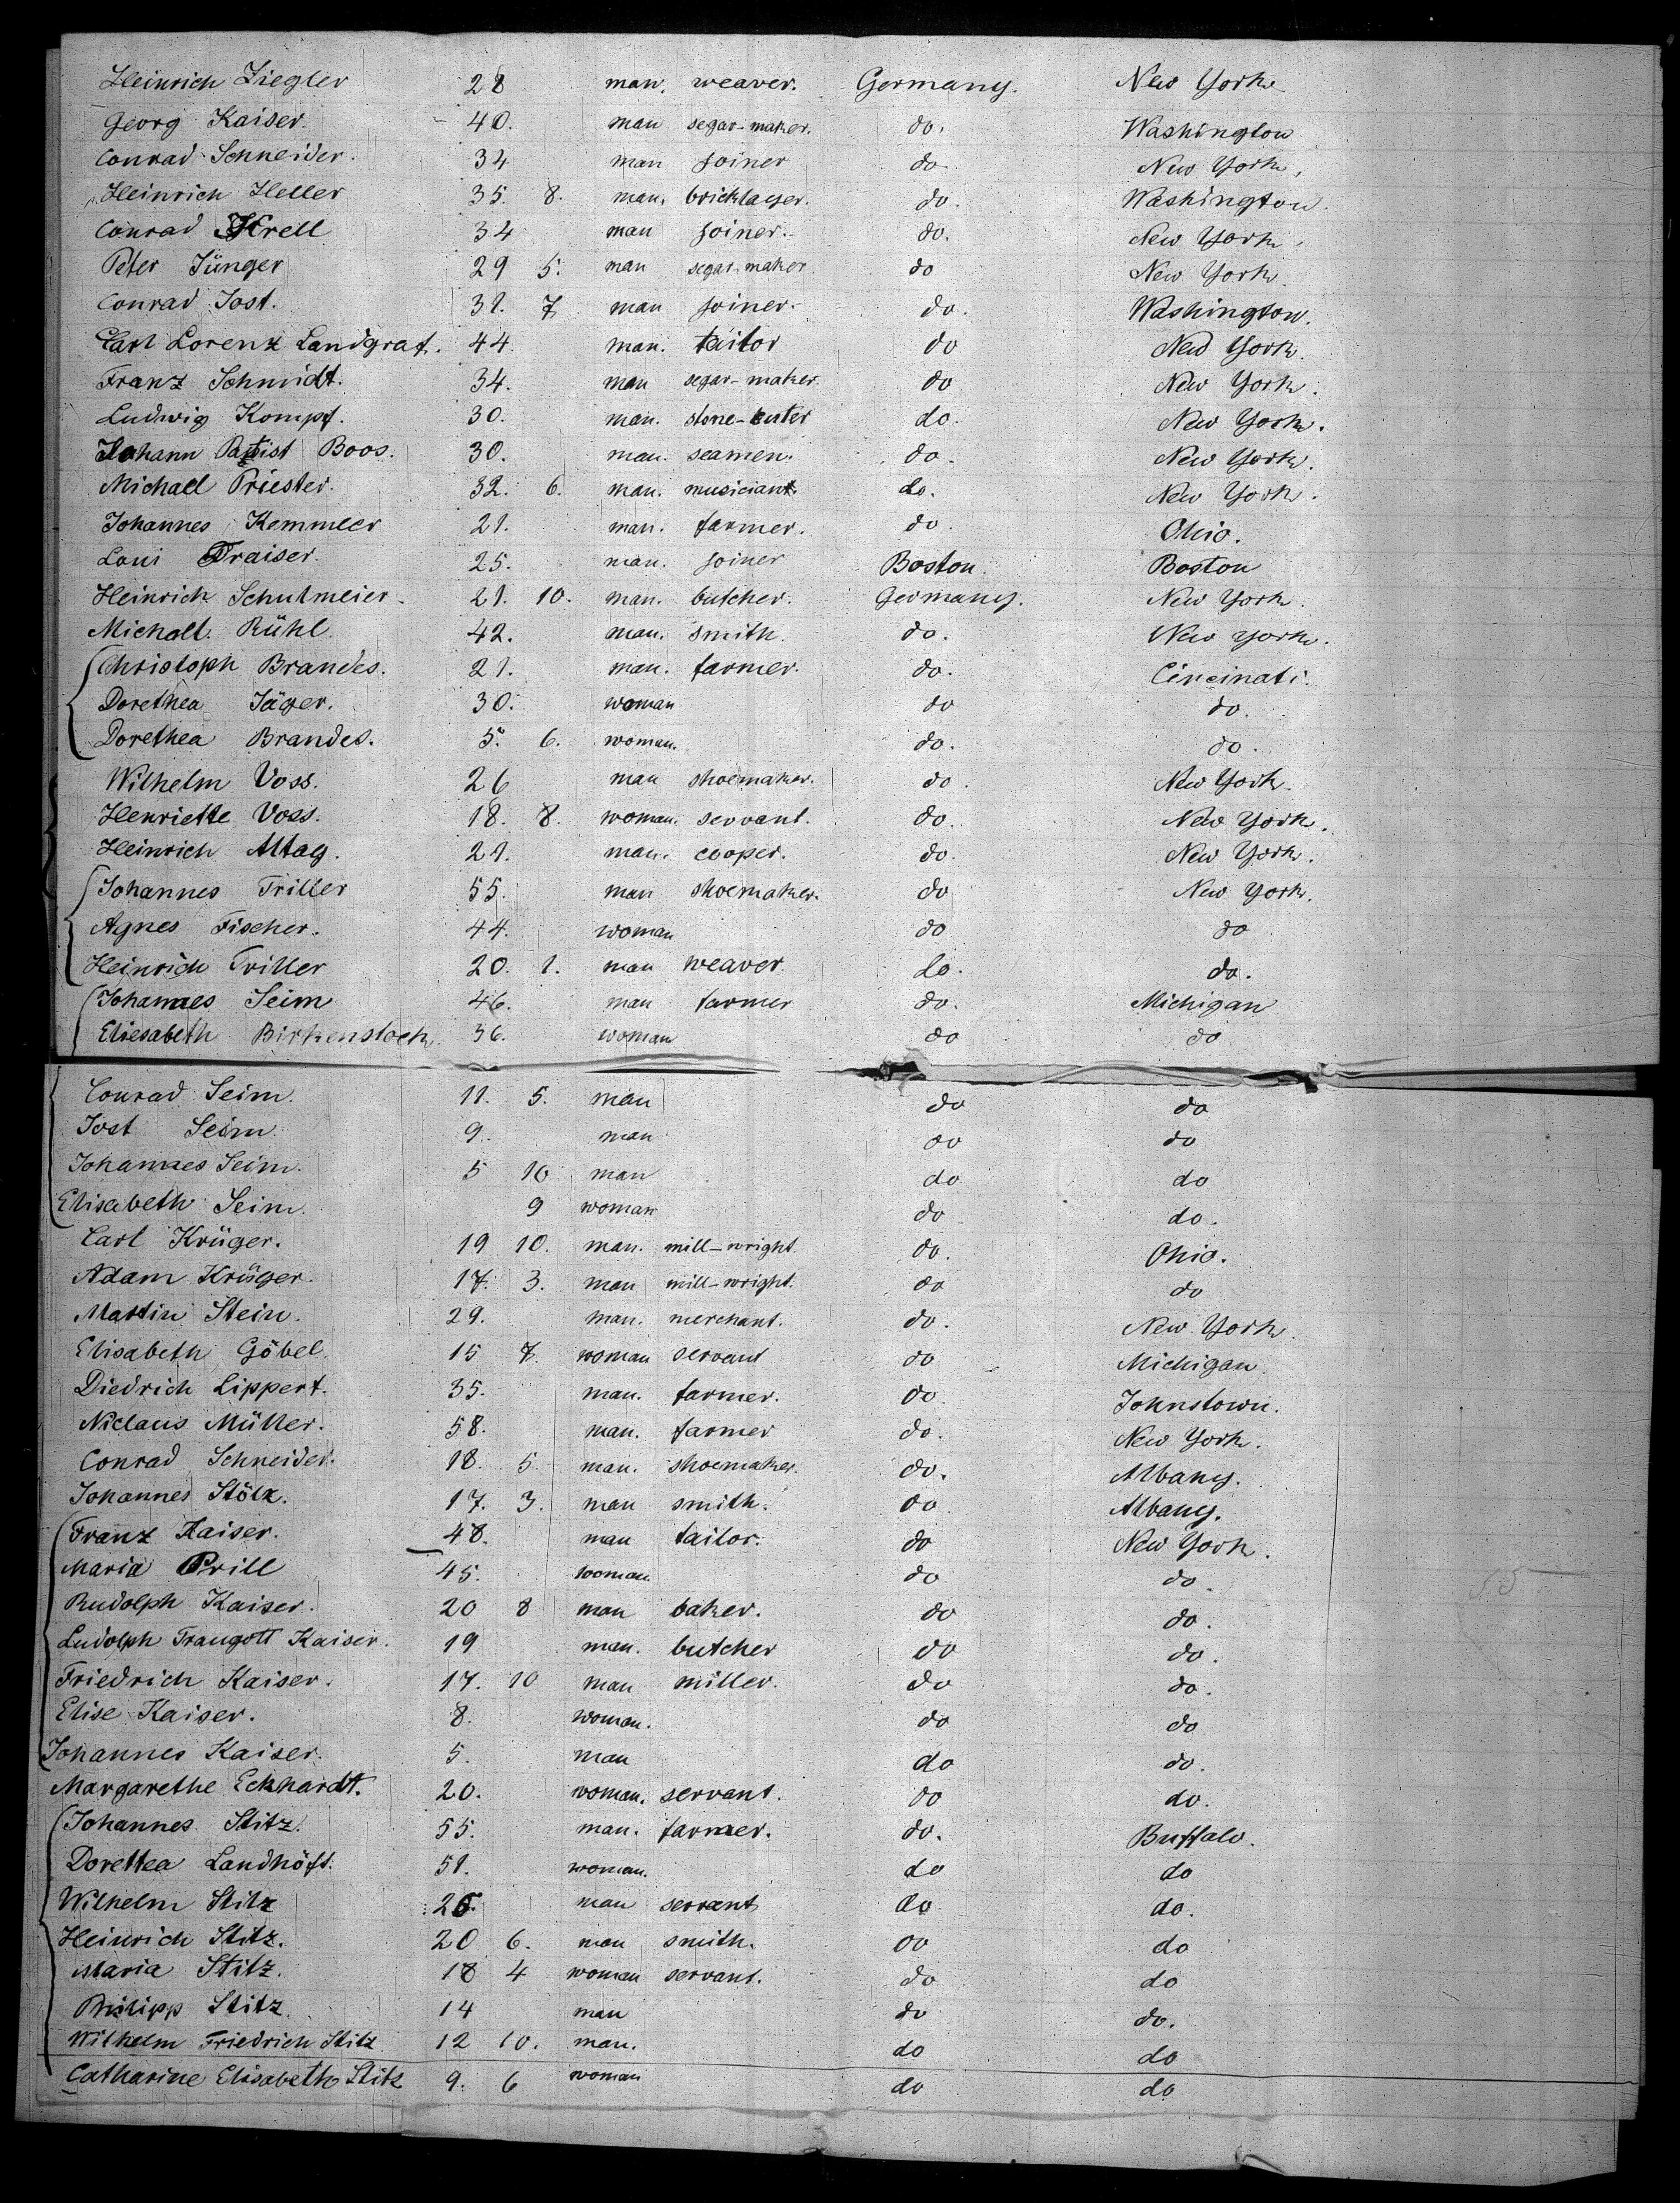 Heinrich Ziegler 28 man. weaver. Germany. New York
Georg Kaiser. 40. man segar-maker. do. Washington
Conrad Schneider. 34 man joiner do New York,
Heinrich Heller 35. 8. man. bricklayer. do. Washington.
Conrad Krell 34 man joiner. do. New York,
Peter Jünger 29 5. man segar-maker. do New York.
Conrad Jost. 31. 7 man joiner. do. Washington.
Carl Lorenz Landgraf. 44. man. tailor do New York.
Franz Schmidt. 34. man segar-maker. do New York.
Ludwig Kompf. 30. man. stone-cuter do. New York.
Johann Batist Boos. 30. man. seamen. do. New York.
Michael Priester. 32. 6. man. musician. do. New York.
Johannes Kemmler 21. man. farmer. do. Ohio.
Loui Traiser. 25. man. joiner Boston. Boston
Heinrich Schulmeier. 21. 10. man. butcher. Germany. New York.
Michall. Rühl. 42. man. smith. do. New York.
Christoph Brandes. 21. man. farmer. do. Cincinati.
Dorethea Jäger. 30. woman do do.
Dorethea Brandes. 5. 6. woman. do. do.
Wilhelm Voss. 26 man shoemaker. do. New York.
Henriette Voss. 18. 8. woman. servant. do. New York.
Heinrich Altag. 21. man. cooper. do. New York.
Johannes Triller 55. man shoemaker. do New York.
Agnes Fischer. 44. woman do do
Heinrich Triller 20. 1. man weaver do. do.
Johannes Seim 46. man farmer do. Michigan
Eliesabeth Birkenstock. 36. woman do do
Conrad Seim. 11. 5. man do do
Jost Seim. 9. man do do
Johannes Seim. 5 10 man do do
Elisabeth Seim. 9 woman do do.
Carl Krüger. 19 10. man. mill-wright. do. Ohio.
Adam Krüger. 17. 3. man mill-wright. do do
Martin Stein. 29. man. merchant. do. New York.
Elisabeth Göbel. 15 7. woman servant do Michigan.
Diedrich Lippert. 35. man. farmer. do. Johnstown.
Niclaus Müller. 58. man. farmer do. New York.
Conrad Schneider. 18. 5 man. shoemaker. do. Albany.
Johannes Stölz. 17. 3. man smith. do Albany.
Franz Kaiser. 48. man tailor. do New York.
Maria Prill 45. woman. do do.
Rudolph Kaiser. 20 8 man baker. do do.
Ludolph Traugott Kaiser. 19 man. butcher do do.
Friedrich Kaiser. 17. 10 man miller. do do.
Elise Kaiser. 8. woman. do do
Johannes Kaiser. 5. man do do.
Margarethe Eckhardt. 20. woman. servant. do do.
Johannes Stitz. 55. man. farmer. do. Buffalo.
Dorettea Landhöft. 51. woman. do do
Wilhelm Stitz man servant do do.
Heinrich Stitz. 20 6. man smith. do do
Maria Stitz. 18 4 woman servant. do do
Philipp Stitz. 14 man do do.
Wilhelm Friedrich Stitz. 12 10. man. do do
Catharine Elisabeth Stitz 9. 6 woman do do
55